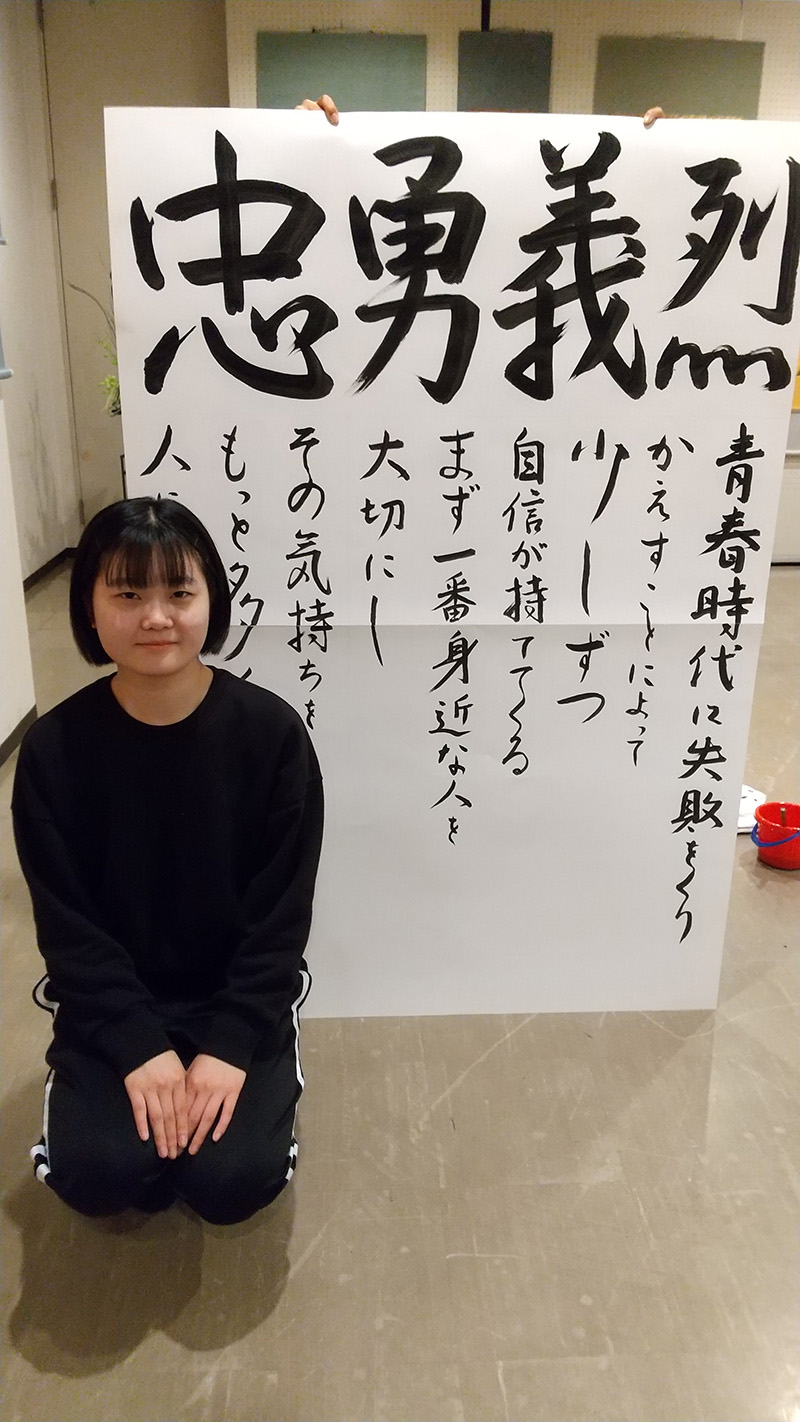 忠勇義烈
青春時代に失敗をくり
かえすことによって
少しずつ
自信が持ててくる
まず一番身近な人を
大切にし
その気持ちを
もっと多
人